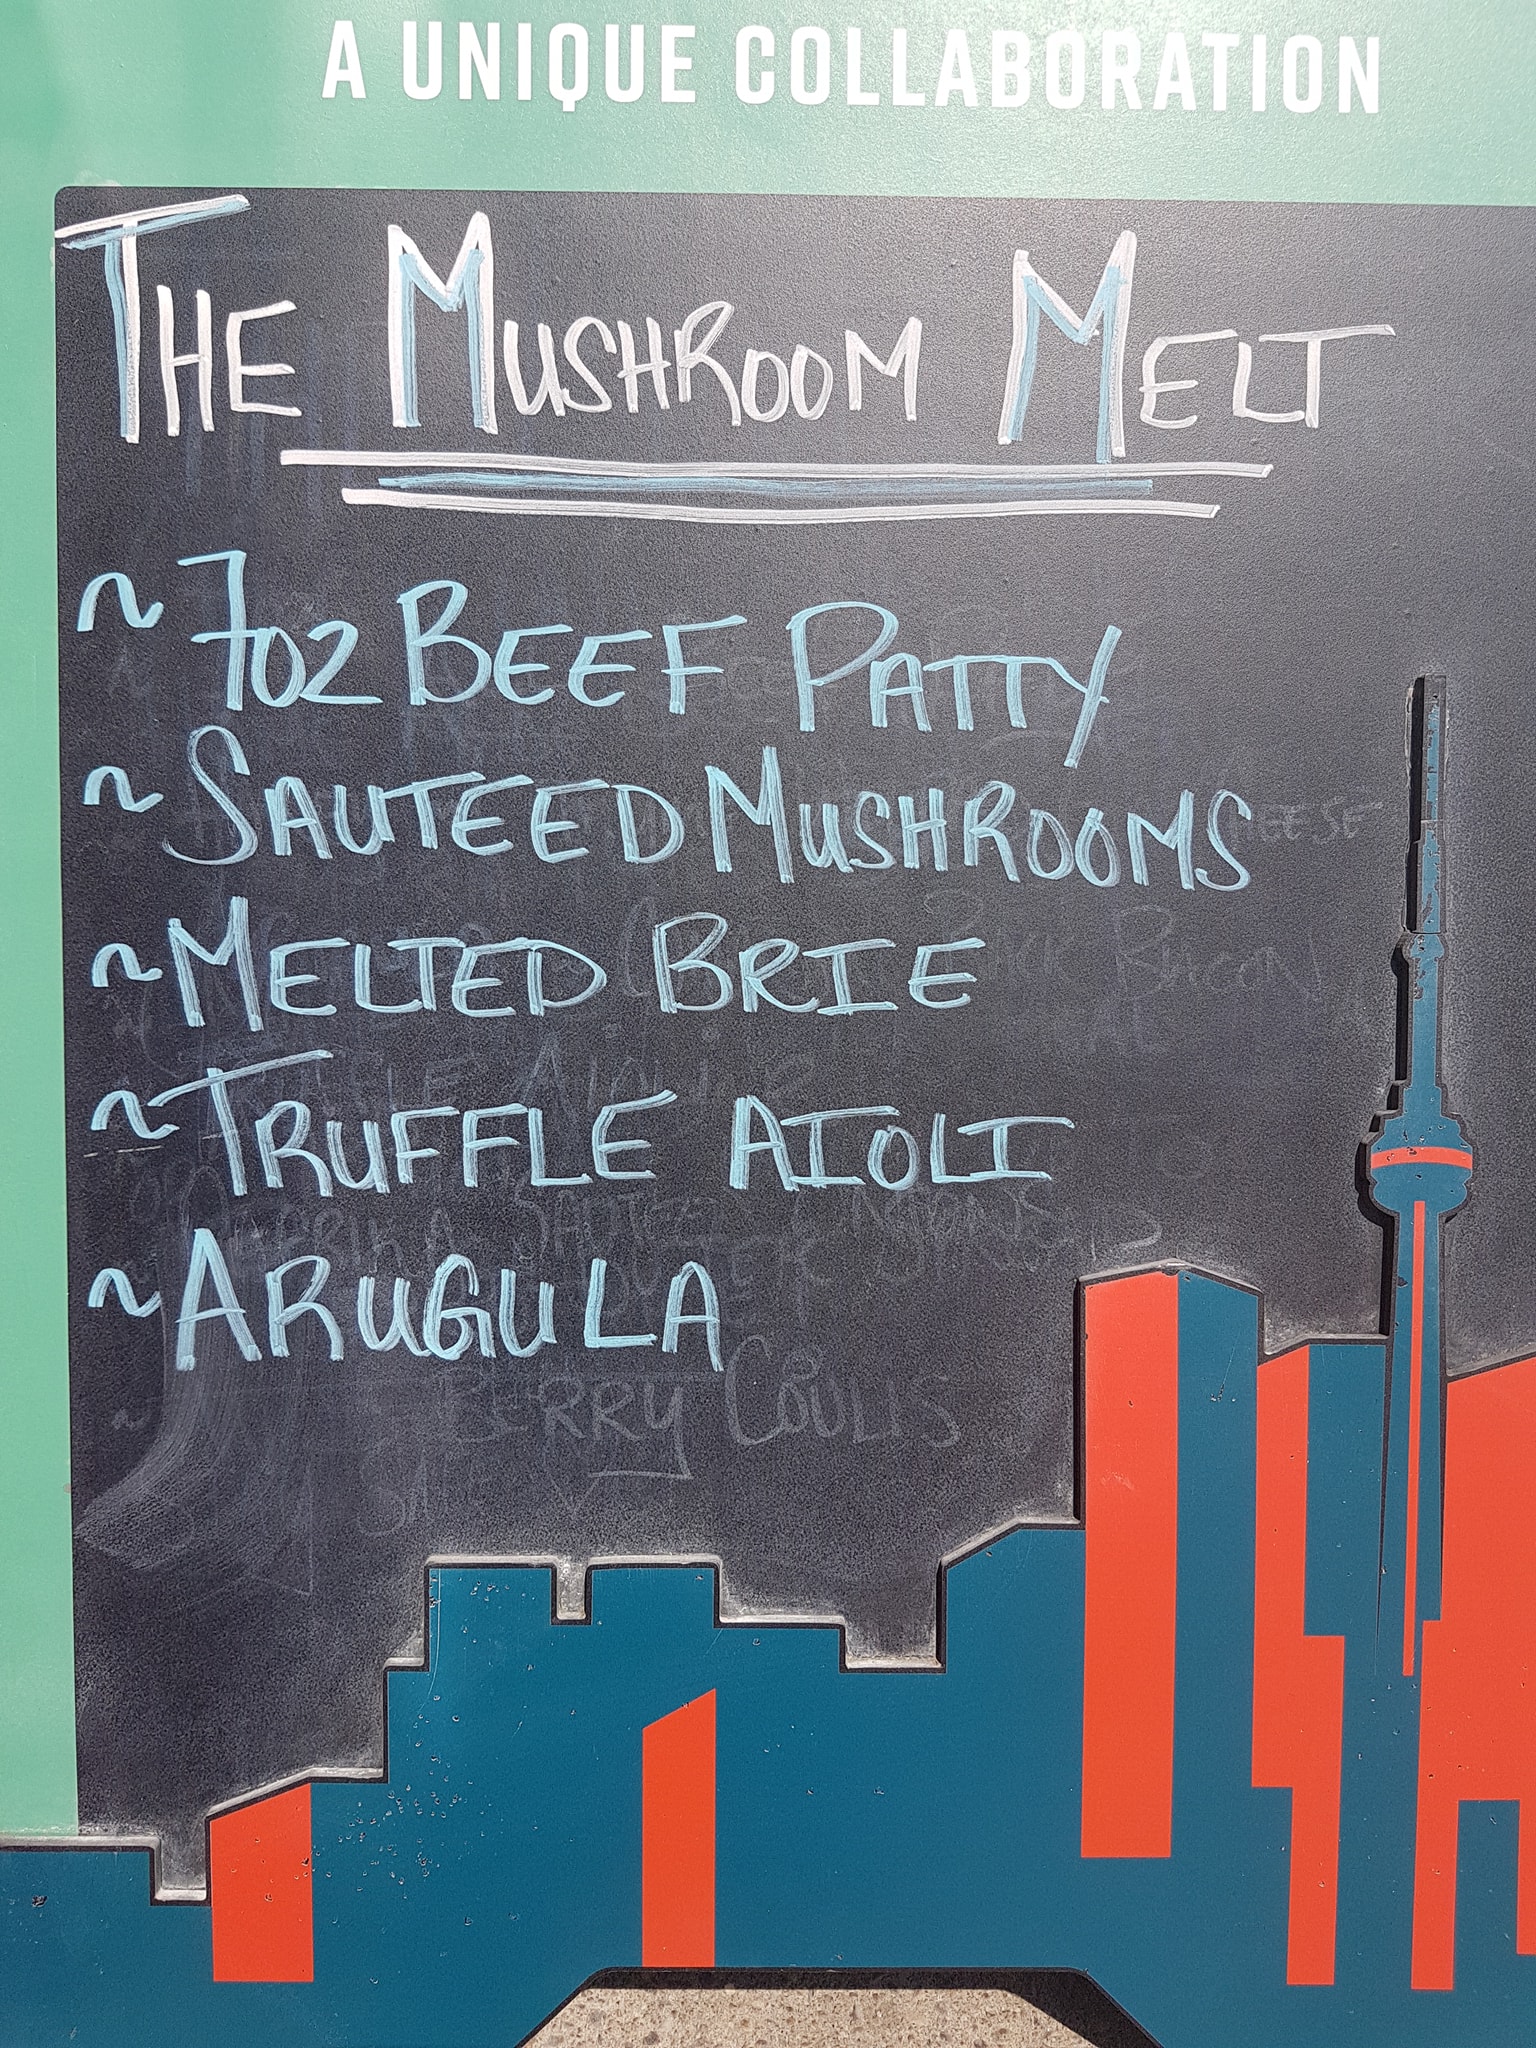 A UNIQUE COLLABORATION
THE MUSHROOM MELT
~ 7OZ BEEF PATTY
~ SAUTEED MUSHROOMS
~ MELTED BRIE
~ TRUFFLE AIOLI
~ ARUGULA
BERRY COULIS